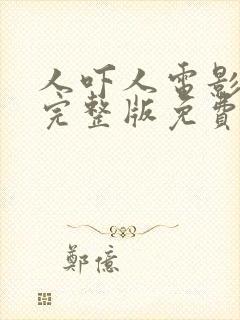 人吓人電影
完整版免費
鄭億